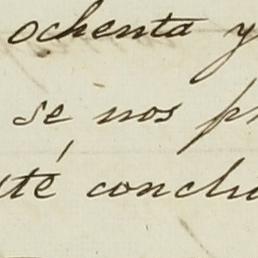 ochenta y
se nos
conclu